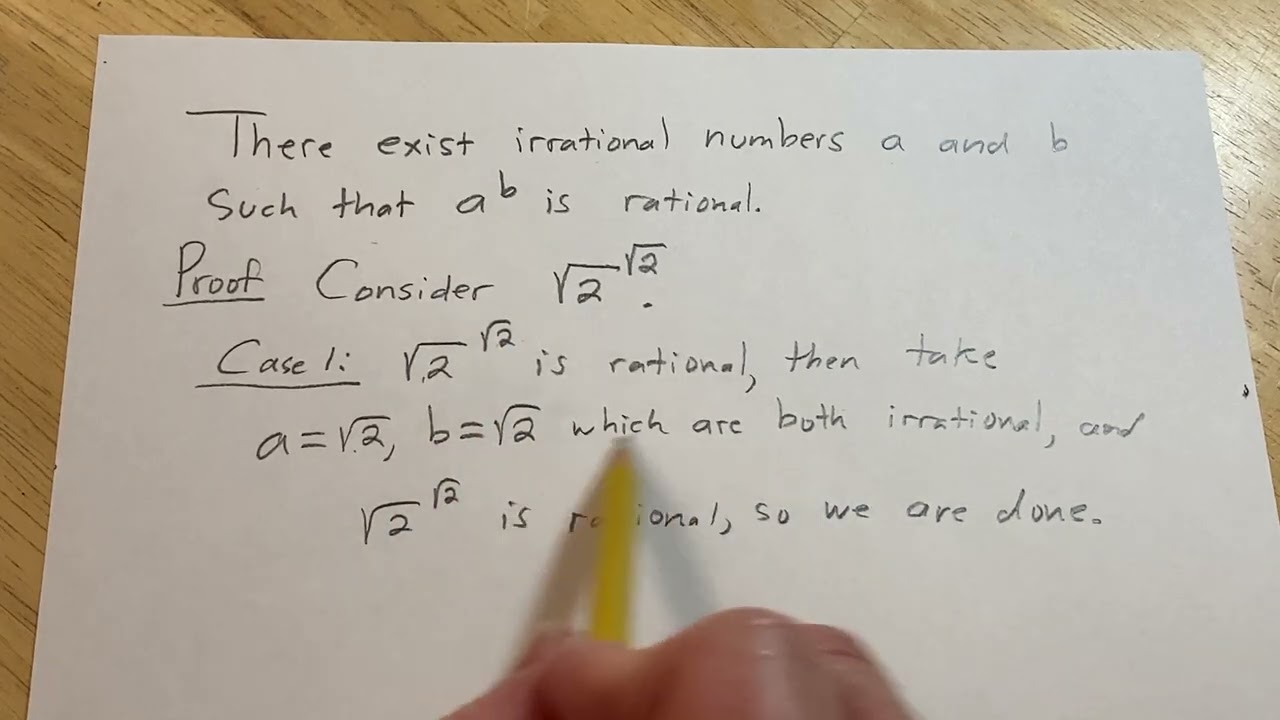 There exist irrational numbers a and b
Such that a^b is rational.
Proof Consider √2^√2.
Case 1: √2^√2 is rational, then take
a=√2, b=√2 which are both irrational, and
√2^√2 is rational, so we are done.